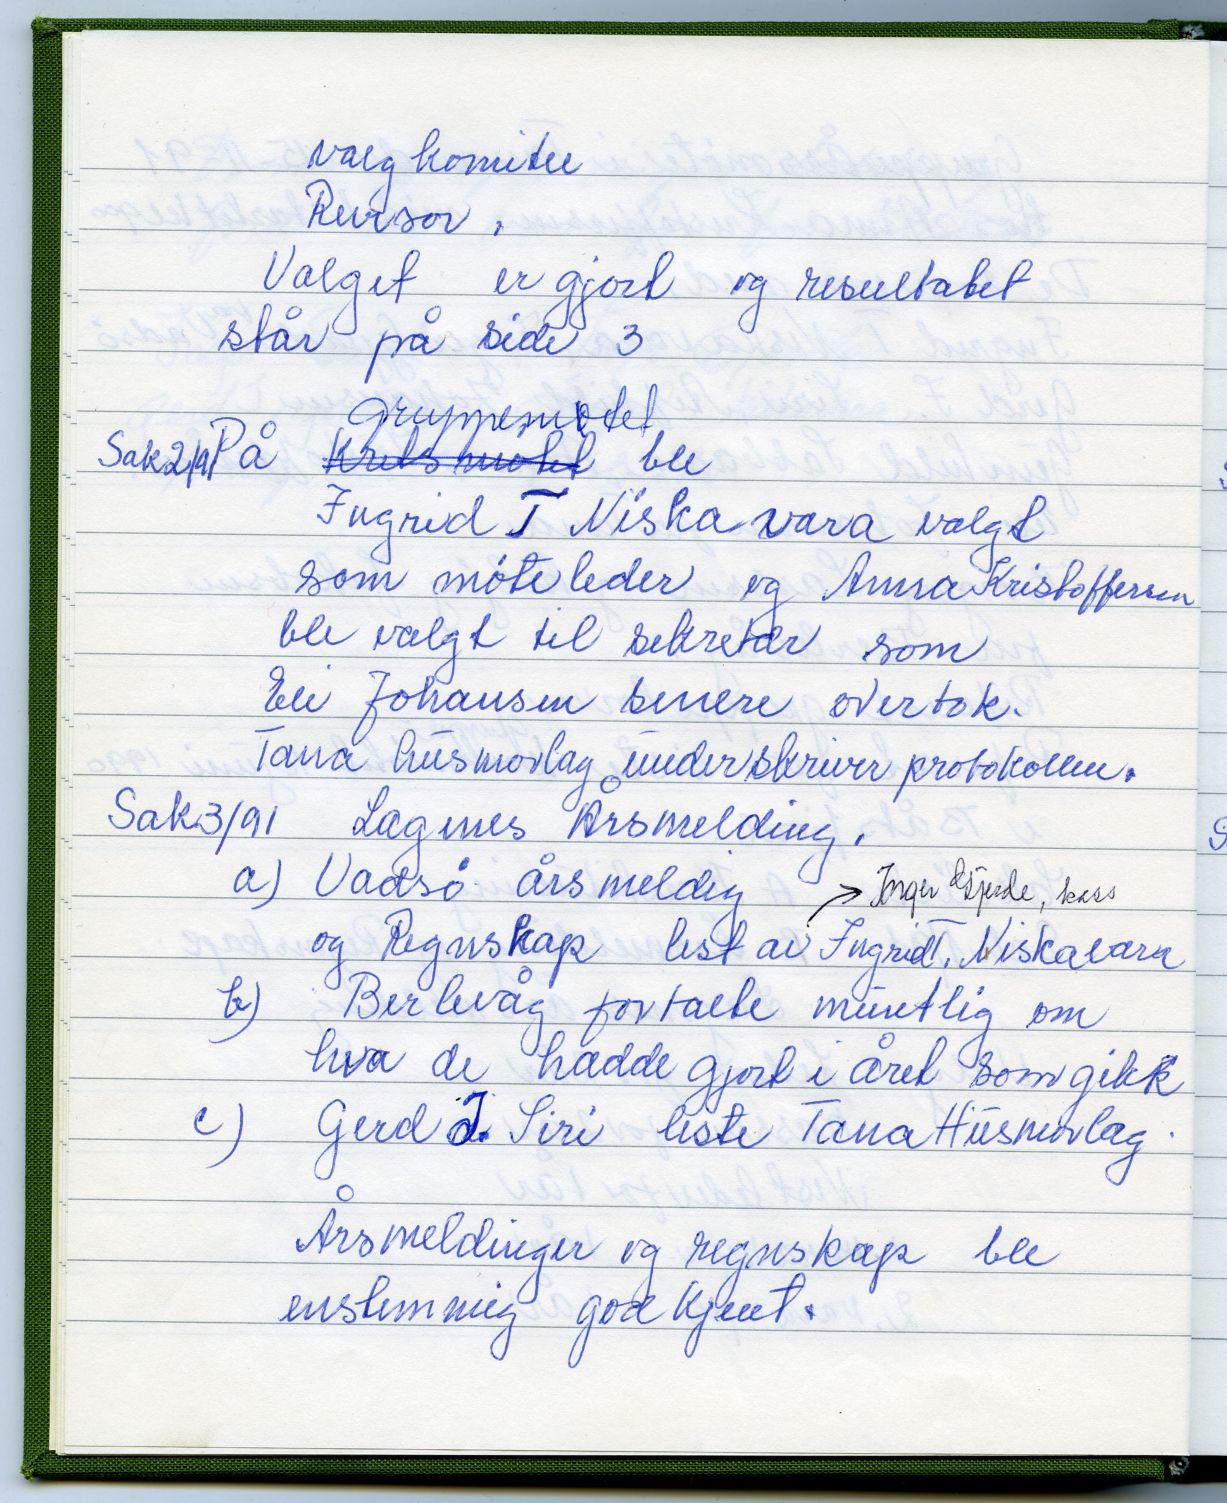 Valgkomitee
Revisor.
Valget er gjort og resultatet
står på side 3
Gruppemøtet
Sak 2/91 På Kretsmøtet ble
Ingrid T Niskavara valgt
som møteleder og Anna Kristoffersen
ble valgt til sekretær som
Eli Johansen senere overtok.
Tana husmorlag underskriver protokollen.
Sak 3/91 Lagenes Årsmelding.
a) Vadsø årsmeldig → Inger Gjerde, kass
og Regnskap lest av Ingrid T. Niskavara
b) Berlevåg fortalte muntlig om
hva de hadde gjort i året som gikk
c) Gerd J. Siri leste Tana Husmorlag.
Årsmeldinger og regnskap ble
enstemmig godkjent.